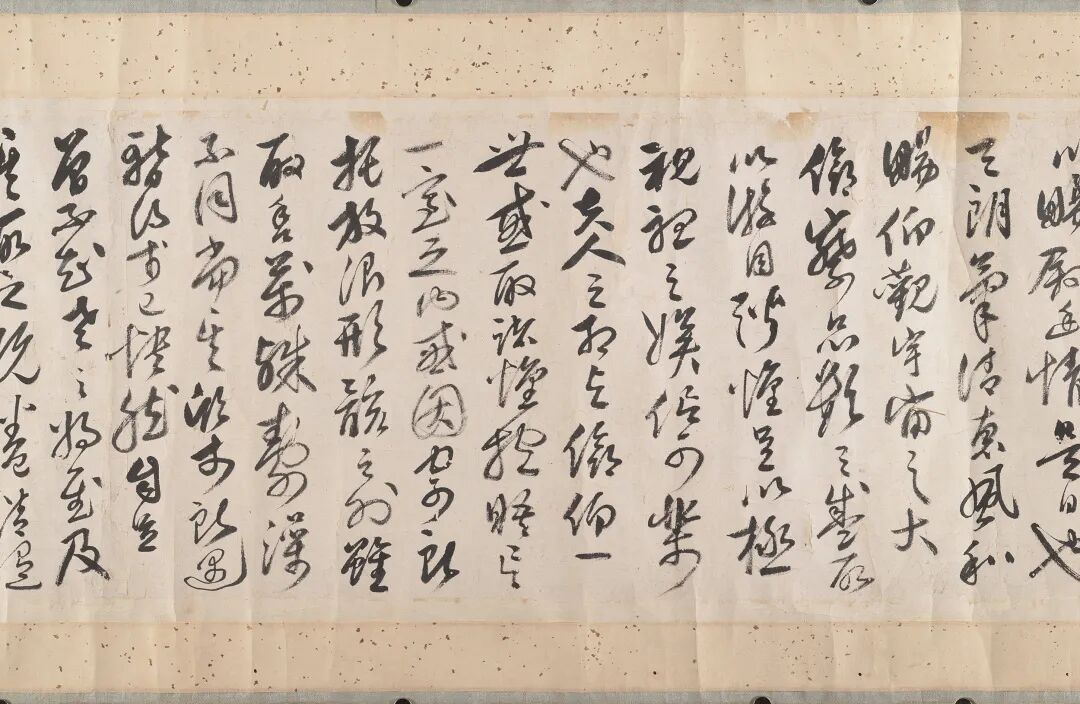 以暢敘幽情是日也
天朗氣清惠風和
暢仰觀宇宙之大
俯察品類之盛所
以遊目騁懷足以極
視聽之娛信可樂
也夫人之相與俯仰一
世或取諸懷抱晤言
一室之內或因寄所
托放浪形骸之外雖
取舍萬殊靜躁
不同當其欣於所遇
暫得於己怏然自足
曾不知老之將至及
其所之既惓情隨